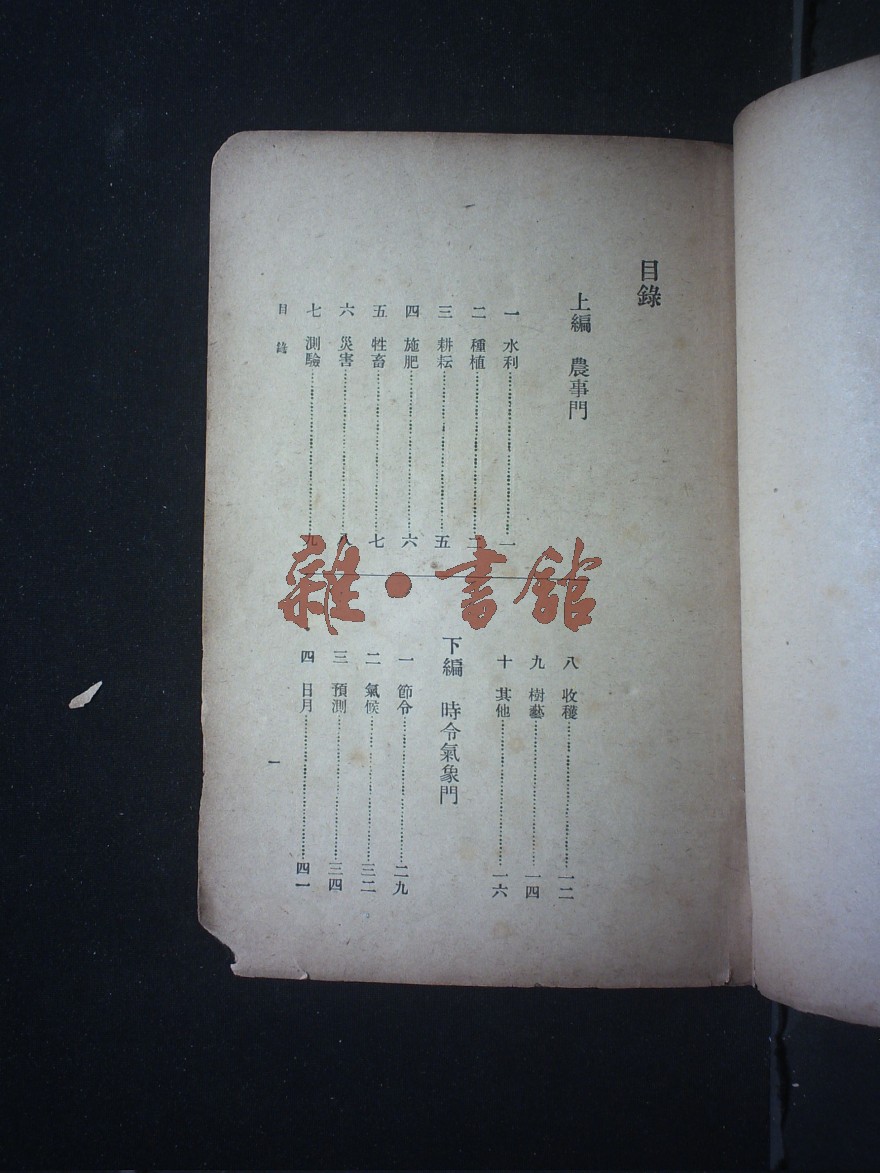 目錄
上編 農事門
一 水利……一
二 種植……二
三 耕耘……五
四 施肥……六
五 牲畜……七
六 災害……八
七 測驗……九
八 收穫……一二
九 樹藝……一四
十 其他……一六
下編 時令氣象門
一 節令……二九
二 氣候……三二
三 預測……三四
四 日月……四一
目錄
一
雜·書館